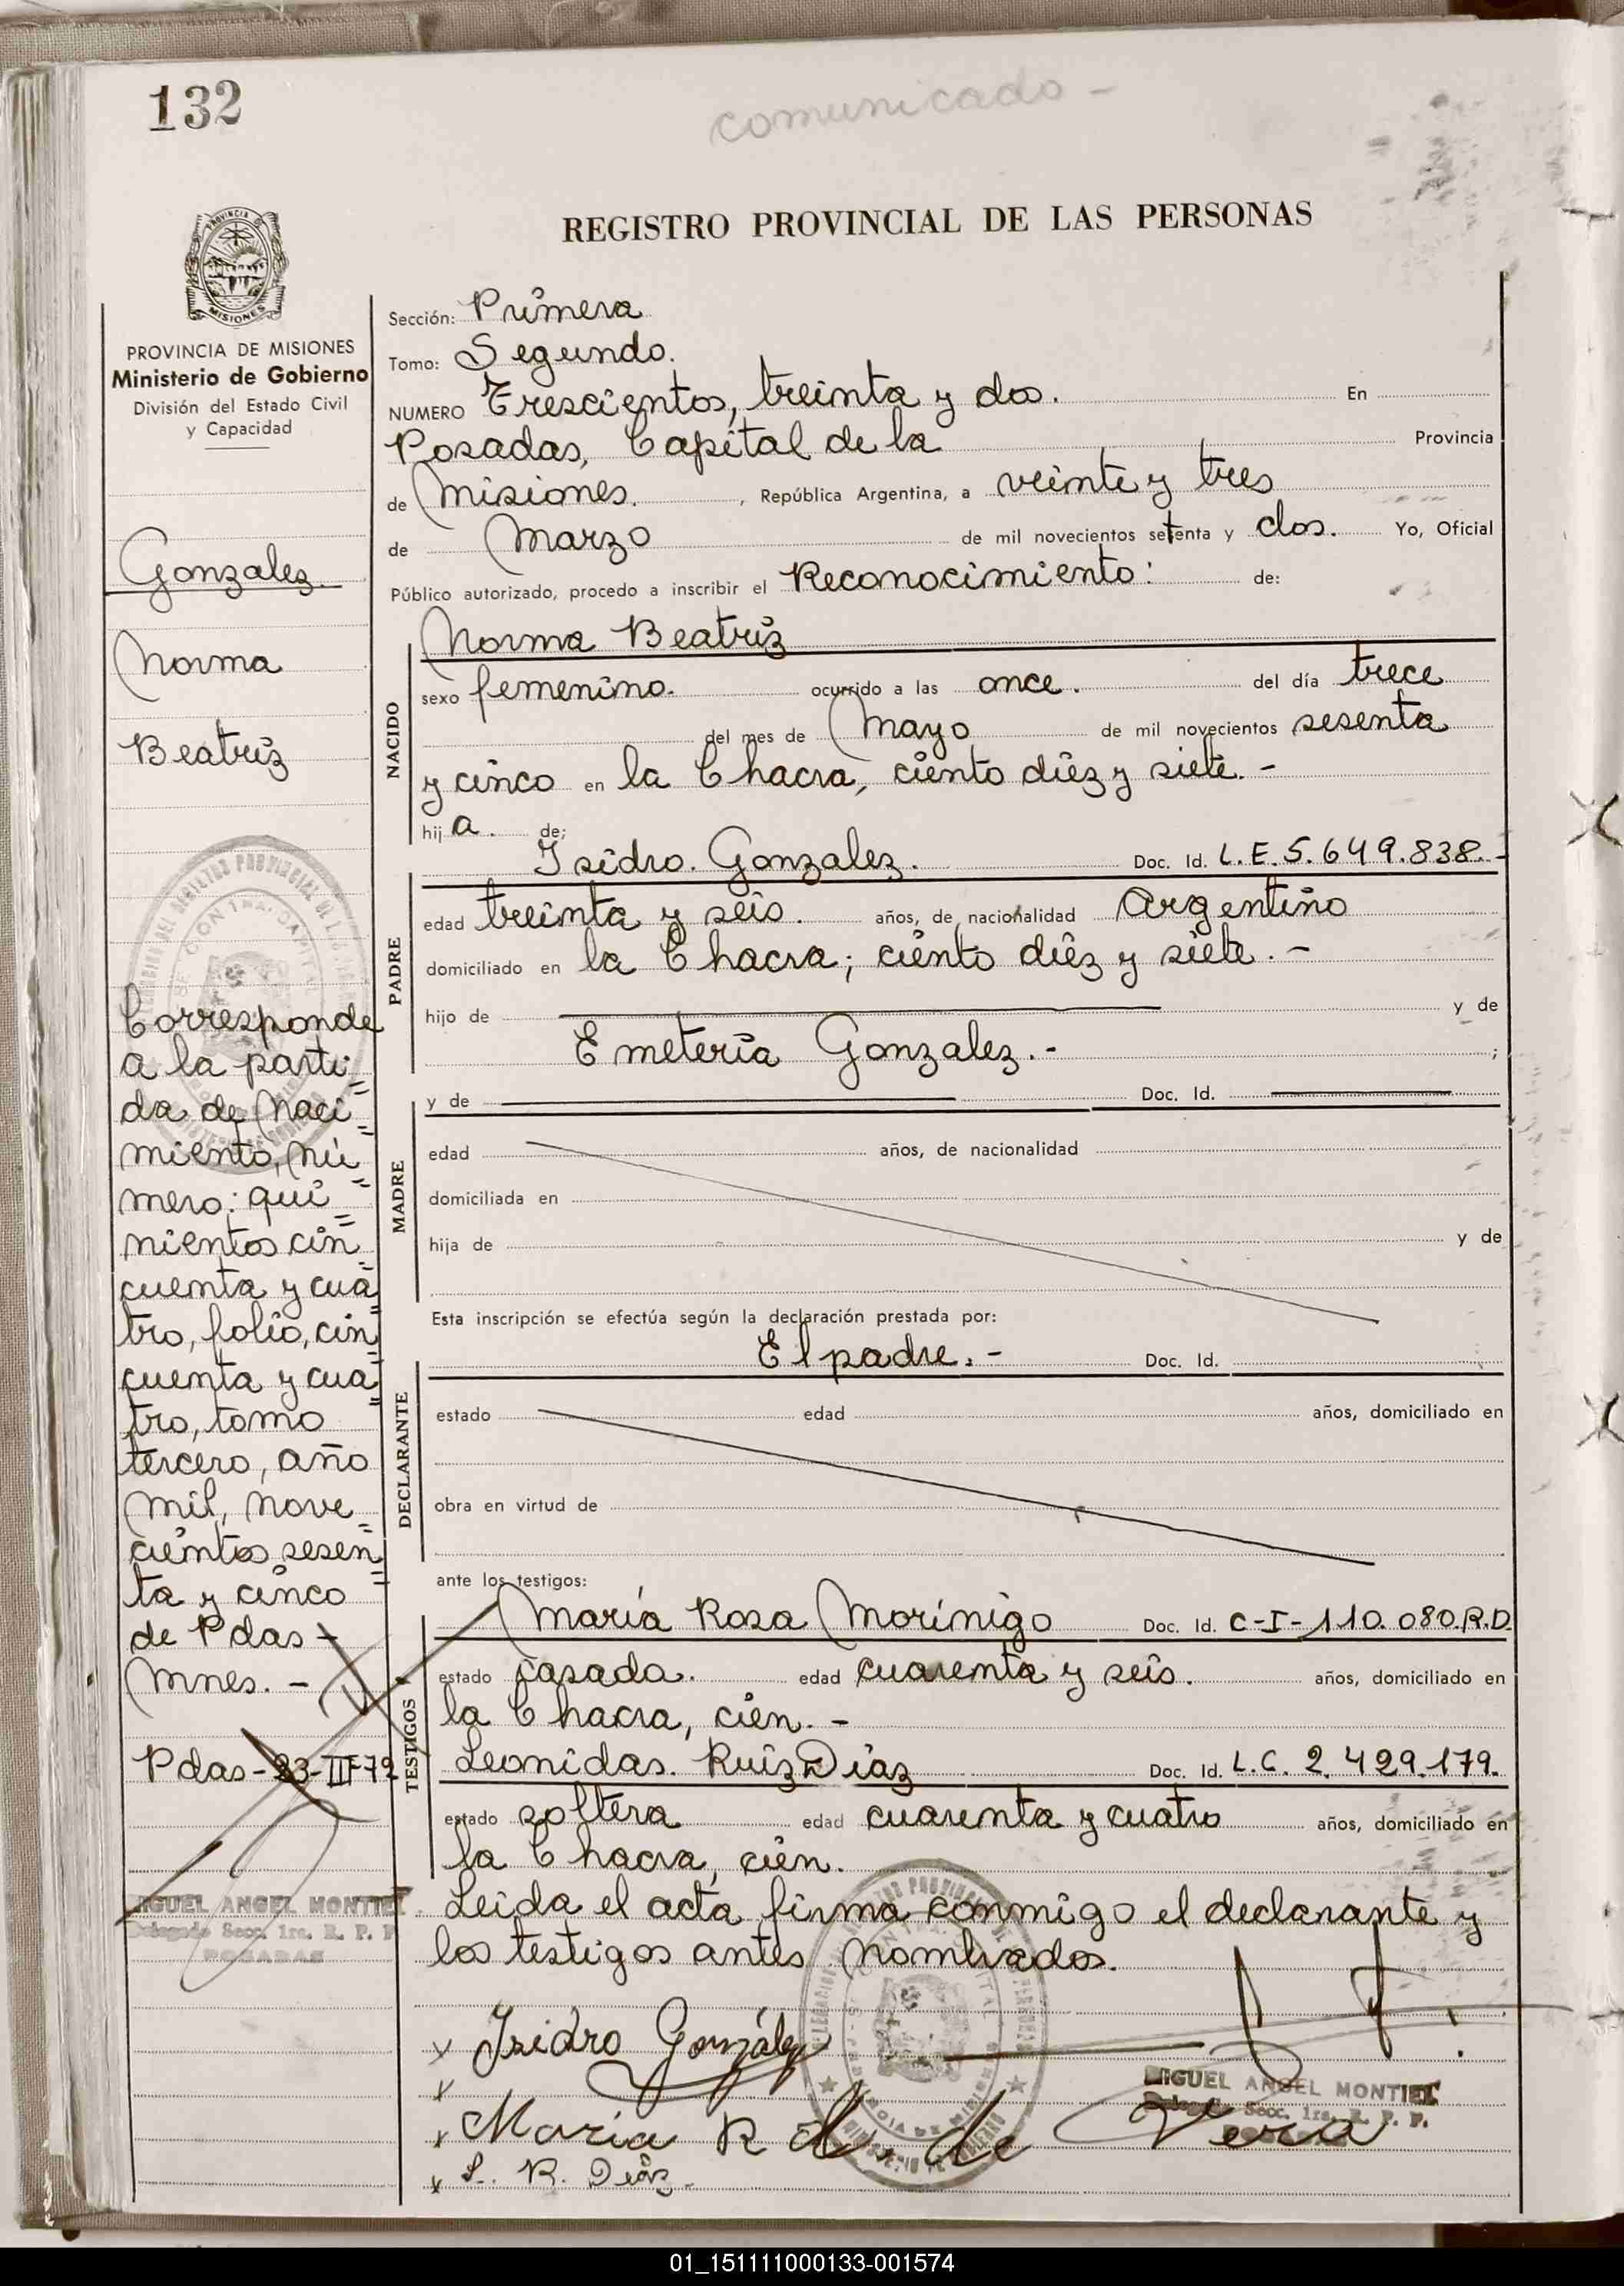 132
comunicado -
REGISTRO PROVINCIAL DE LAS PERSONAS
MISIONES
PROVINCIA DE MISIONES
Ministerio de Gobierno
División del Estado Civil
y Capacidad
Gonzalez.
Norma
Beatriz
Corresponde
a la parti=
da de Naci=
miento, nú=
mero: qui=
nientos cin=
cuenta y cua=
tro, folio, cin=
cuenta y cua=
tro, tomo
tercero, año
mil, nove=
cientos sesen=
ta y cinco
de Pdas -
Mnes. -
Pdas - 23-III-72
MIGUEL ANGEL MONTIEL
Delegado Secc. 1ra. R. P. P.
POSADAS
Sección: Primera
Tomo: Segundo.
NUMERO Trescientos, treinta y dos. En
Posadas, Capital de la Provincia
de Misiones. , República Argentina, a veinte y tres
de Marzo de mil novecientos setenta y dos. Yo, Oficial
Público autorizado, procedo a inscribir el Reconocimiento: de:
NACIDO
Norma Beatriz
sexo femenino. ocurrido a las once. del día trece
del mes de Mayo de mil novecientos sesenta
y cinco en la Chacra, ciento diez y siete. -
hij a. de;
PADRE
Isidro. Gonzalez. Doc. Id. L.E. 5.649.838. -
edad treinta y seis. años, de nacionalidad Argentino
domiciliado en la Chacra; ciento diez y siete. -
hijo de y de
Emeteria Gonzalez. - ;
MADRE
y de Doc. Id.
edad años, de nacionalidad
domiciliada en
hija de y de
Esta inscripción se efectúa según la declaración prestada por:
DECLARANTE
El padre. - Doc. Id.
estado edad años, domiciliado en
obra en virtud de
ante los testigos:
TESTIGOS
María Rosa Morínigo Doc. Id. C-I-110.080.R.D.
estado casada. edad cuarenta y seis. años, domiciliado en
la Chacra, cien. -
Leonidas. Ruiz Diaz Doc. Id. L.C. 2.429.179.
estado soltera edad cuarenta y cuatro años, domiciliado en
la Chacra, cien.
Leida el acta, firma conmigo el declarante y
los testigos antes nombrados.
x Isidro González
x
MIGUEL ANGEL MONTIEL
Delegado Secc. 1ra. R. P. P.
x Maria R de Vera
x L. R. Diaz -
01_151111000133-001574